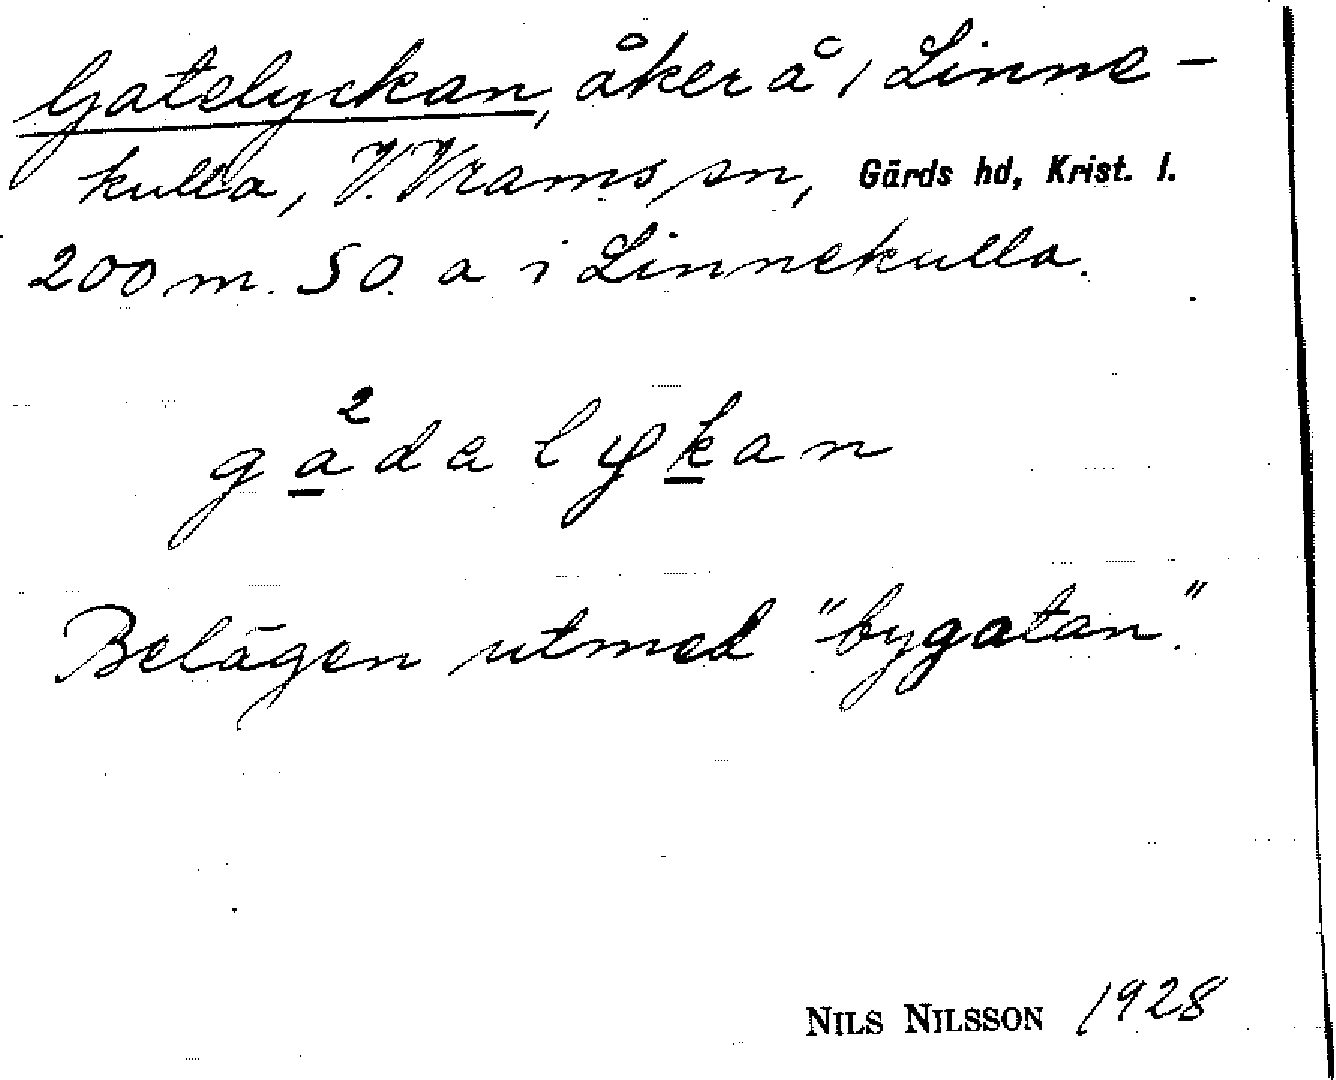 Gatelyckan, åker å 1 Linne-
kulla, V. Vrams sn, Gärds hd, Krist. l.
200 m. SO. a i Linnekulla.
gadalykan
2
Belägen utmed "bygatan".
NILS NILSSON 1928